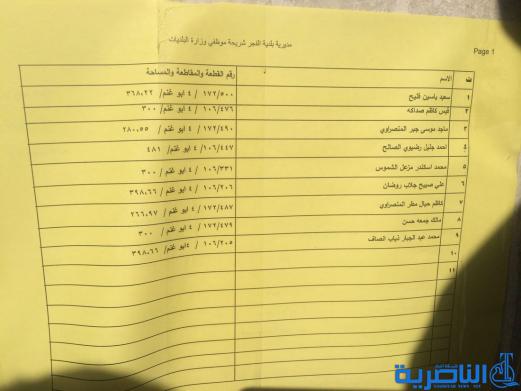 Page 1
مديرية بلدية الفجر شريحة موظفي وزارة البلديات
ت الاسم رقم القطعة والمقاطعة والمساحة
١ سعيد ياسين فليح ١٧٢/٥٠٠ / ٤ ابو غنم/ ٣٦٨,٢٢
٢ قيس كاظم صداكه ١٠٦/٤٧٦ / ٤ ابو غنم/ ٣٠٠
٣ ماجد موسى جبر المنصراوي ١٧٢/٤٩٠ / ٤ ابو غنم/ ٢٨٠,٥٥
٤ احمد جليل رضيوي الصالح ١٠٦/٤٤٧ / ٤ ابو غنم/ ٤٨١
٥ محمد اسكندر مزعل الشموس ١٠٦/٣٣١ / ٤ ابو غنم/ ٣٠٠
٦ علي صبيح جلاب روضان ١٠٦/٢٠٦ / ٤ ابو غنم/ ٣٩٨,٦٦
٧ كاظم حيال مطر المنصراوي ١٧٢/٤٨٧ / ٤ ابو غنم/ ٢٦٦,٩٧
٨ مالك جمعه حسن ١٧٢/٤٧٩ / ٤ ابو غنم/ ٣٠٠
٩ محمد عبد الجبار ذياب الصاف ١٠٦/٢٠٥ / ٤ابو غنم/ ٣٩٨,٦٦
١٠
١١
الناصرية